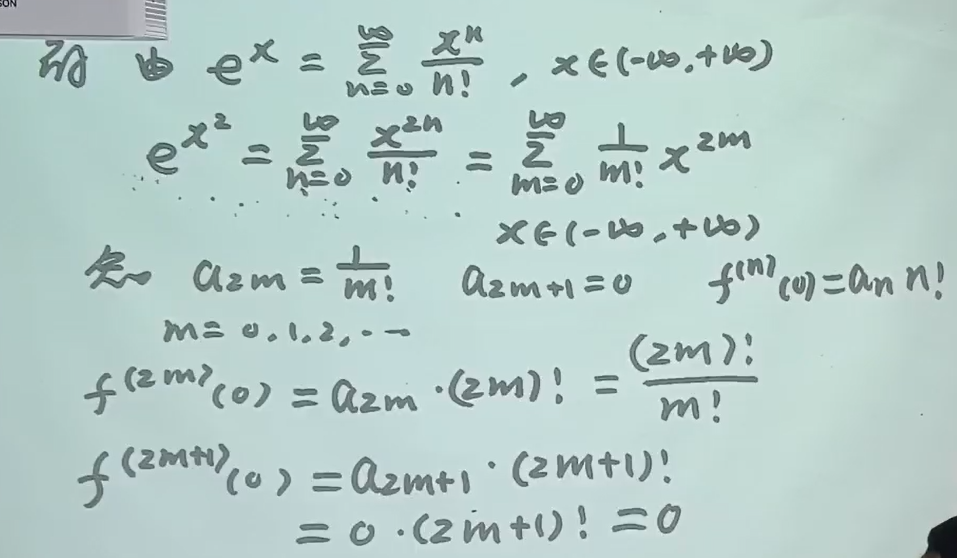 SON
解 由 e^x = \sum_{n=0}^{\infty} \frac{x^n}{n!}, x∈(-∞,+∞)
e^{x^2} = \sum_{n=0}^{\infty} \frac{x^{2n}}{n!} = \sum_{m=0}^{\infty} \frac{1}{m!} x^{2m}
x∈(-∞,+∞)
知 a_{2m} = \frac{1}{m!} a_{2m+1} = 0 f^{(n)}(0) = a_n n!
m = 0,1,2,...
f^{(2m)}(0) = a_{2m}·(2m)! = \frac{(2m)!}{m!}
f^{(2m+1)}(0) = a_{2m+1}·(2m+1)!
= 0·(2m+1)! = 0